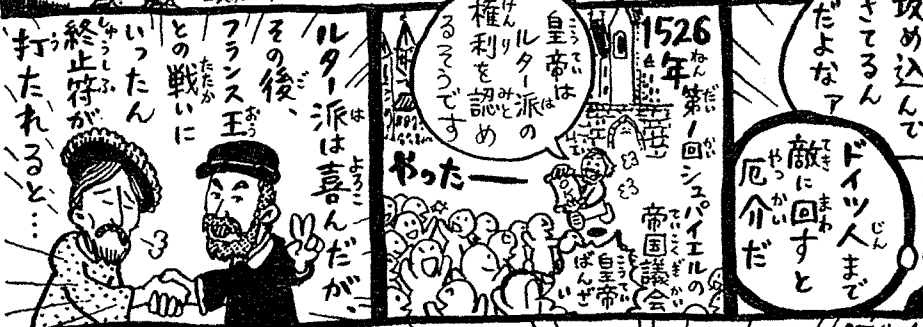 攻め込んで
きてるん
だよなァ
ドイツ人まで
敵に回すと
厄介だ
1526年 第1回シュパイエルの
帝国議会
皇帝は
ルター派の
権利を認め
るそうです
やったー
皇帝
ばんざーい
ルター派は喜んだが
その後、
フランス王
との戦いに
いったん
終止符が
打たれると…